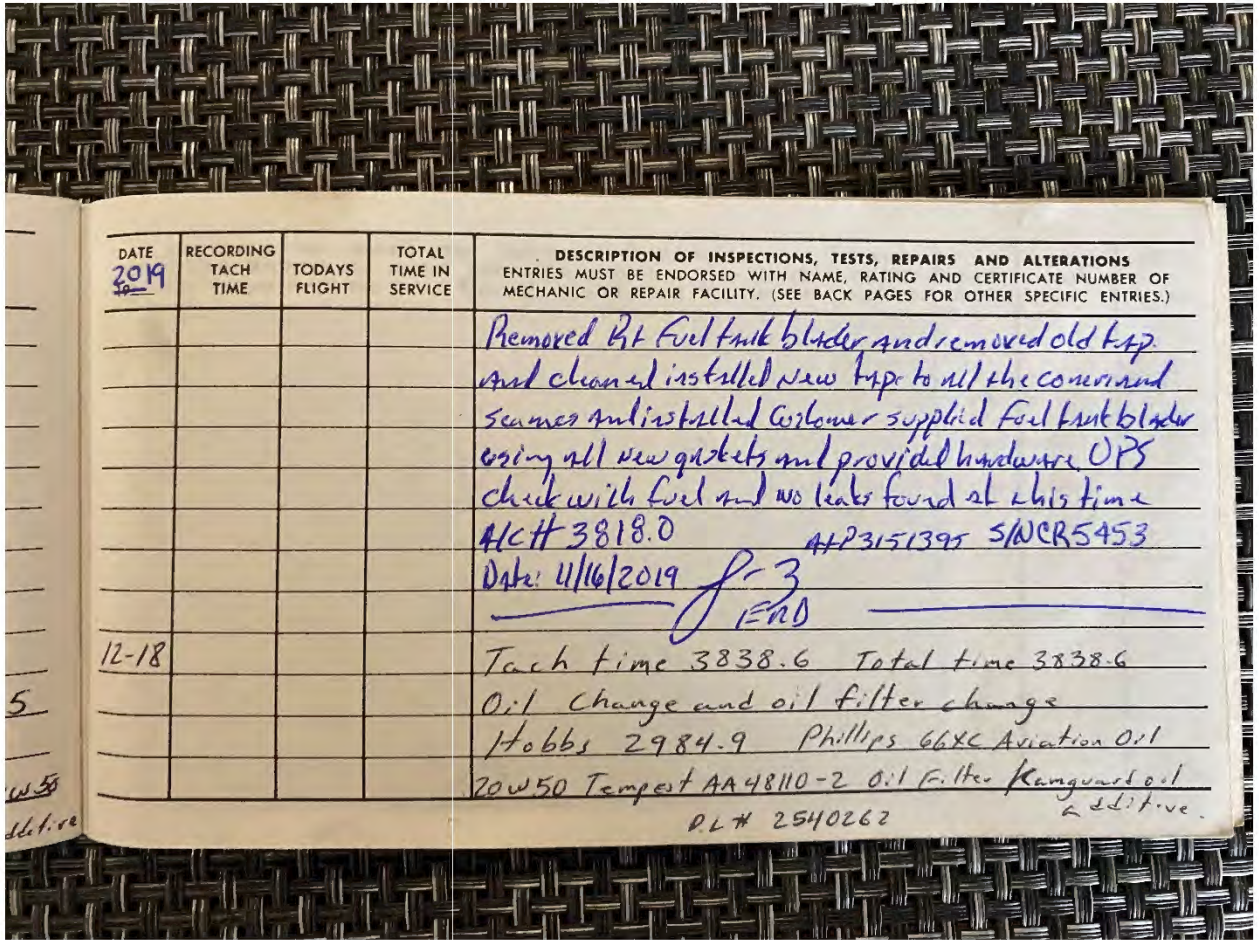 DATE
2019
RECORDING
TACH
TIME
TODAYS
FLIGHT
TOTAL
TIME IN
SERVICE
DESCRIPTION OF INSPECTIONS, TESTS, REPAIRS AND ALTERATIONS
ENTRIES MUST BE ENDORSED WITH NAME, RATING AND CERTIFICATE NUMBER OF
MECHANIC OR REPAIR FACILITY. (SEE BACK PAGES FOR OTHER SPECIFIC ENTRIES.)
Removed Rt Fuel tank blader and removed old tap
And cleaned installed New tape to all the
seames and installed Customer supplied fuel tank blader
using all new gaskets and provided hardware OPS
check with fuel and no leaks found at this time
3818.0 A+P3151395 S/NCR5453
Date: 11/16/2019
END
12-18 Tach time 3838.6 Total time 3838.6
Oil Change and oil filter change
5
Hobbs 2984.9 Phillips 66XC Aviation Oil
20W50 Tempest AA48110-2 Oil Filter Kamguard oil
additive.
W50
dditive
P.L# 2540262